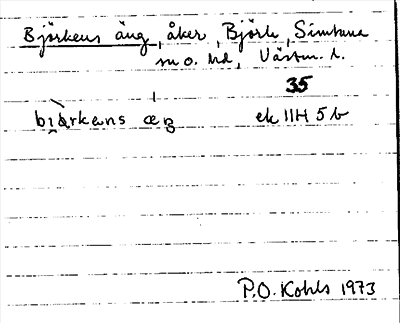 Björkens äng, åker, Björk, Simtuna
sn o. hd, Västm. l.
35
bı̯årkens æŋ ek 11H 5b
P.O. Kohls 1973